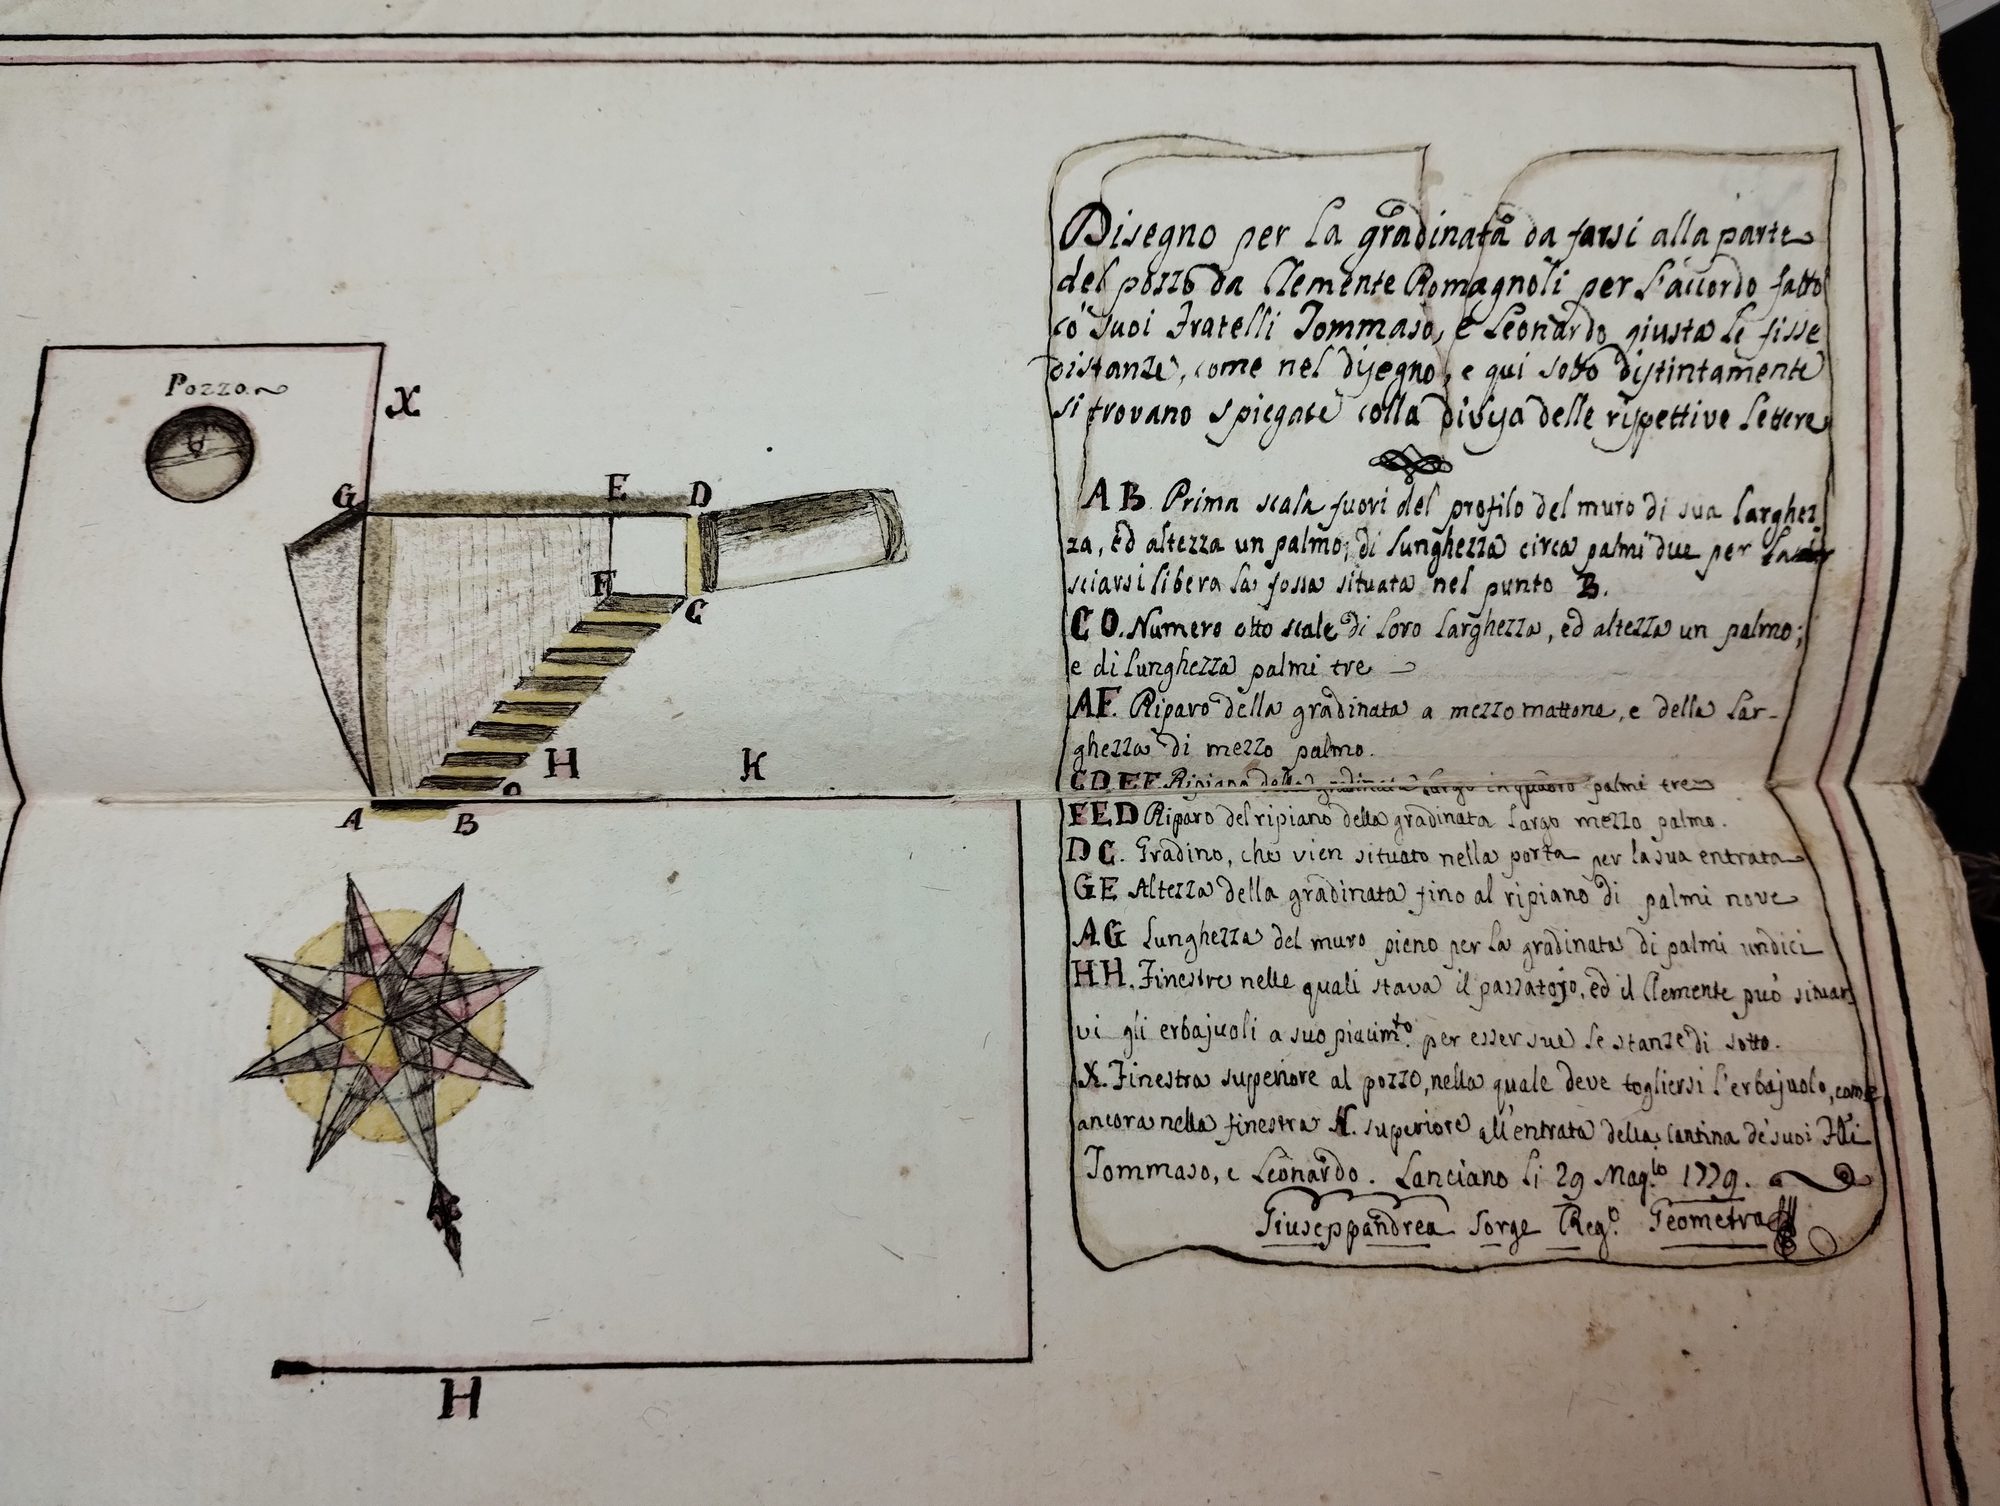 Pozzo
X
G
E
D
F
C
H
K
A
B
H
Disegno per la gradinata da farsi alla parte
del pozzo da Clemente Romagnoli per l'accordo fatto
cõ suoi Fratelli Tommaso, e Leonardo giusta le fisse
distanze, come nel disegno, e qui sotto distintamente
si trovano spiegate colla divisa delle rispettive lettere
A B. Prima scala fuori del profilo del muro di sua larghez-
za, ed altezza un palmo; di lunghezza circa palmi due per la
sciarsi libera la fossa situata nel punto B.
C O. Numero otto scale di loro larghezza, ed altezza un palmo;
e di lunghezza palmi tre
AF. Riparo della gradinata a mezzo mattone, e della lar-
ghezza di mezzo palmo.
C D E F Ripiano della gradinata largo in quadro palmi tre
F E D Riparo del ripiano della gradinata largo mezzo palmo.
D C. Gradino, che vien situato nella porta per la sua entrata
G E Altezza della gradinata fino al ripiano di palmi nove
A G Lunghezza del muro pieno per la gradinata di palmi undici
H H. Finestre nelle quali stava il passatojo, ed il Clemente può situar
vi gli erbajuoli a suo piacim.to per esser sue le stanze di sotto.
X. Finestra superiore al pozzo, nella quale deve togliersi l'erbajuolo, come
ancora nella finestra K. superiore all'entrata della cantina de' suoi Flli
Tommaso, e Leonardo. Lanciano li 29 Mag.lo 1779.
Giuseppandrea Sorge Reg.o Geometra